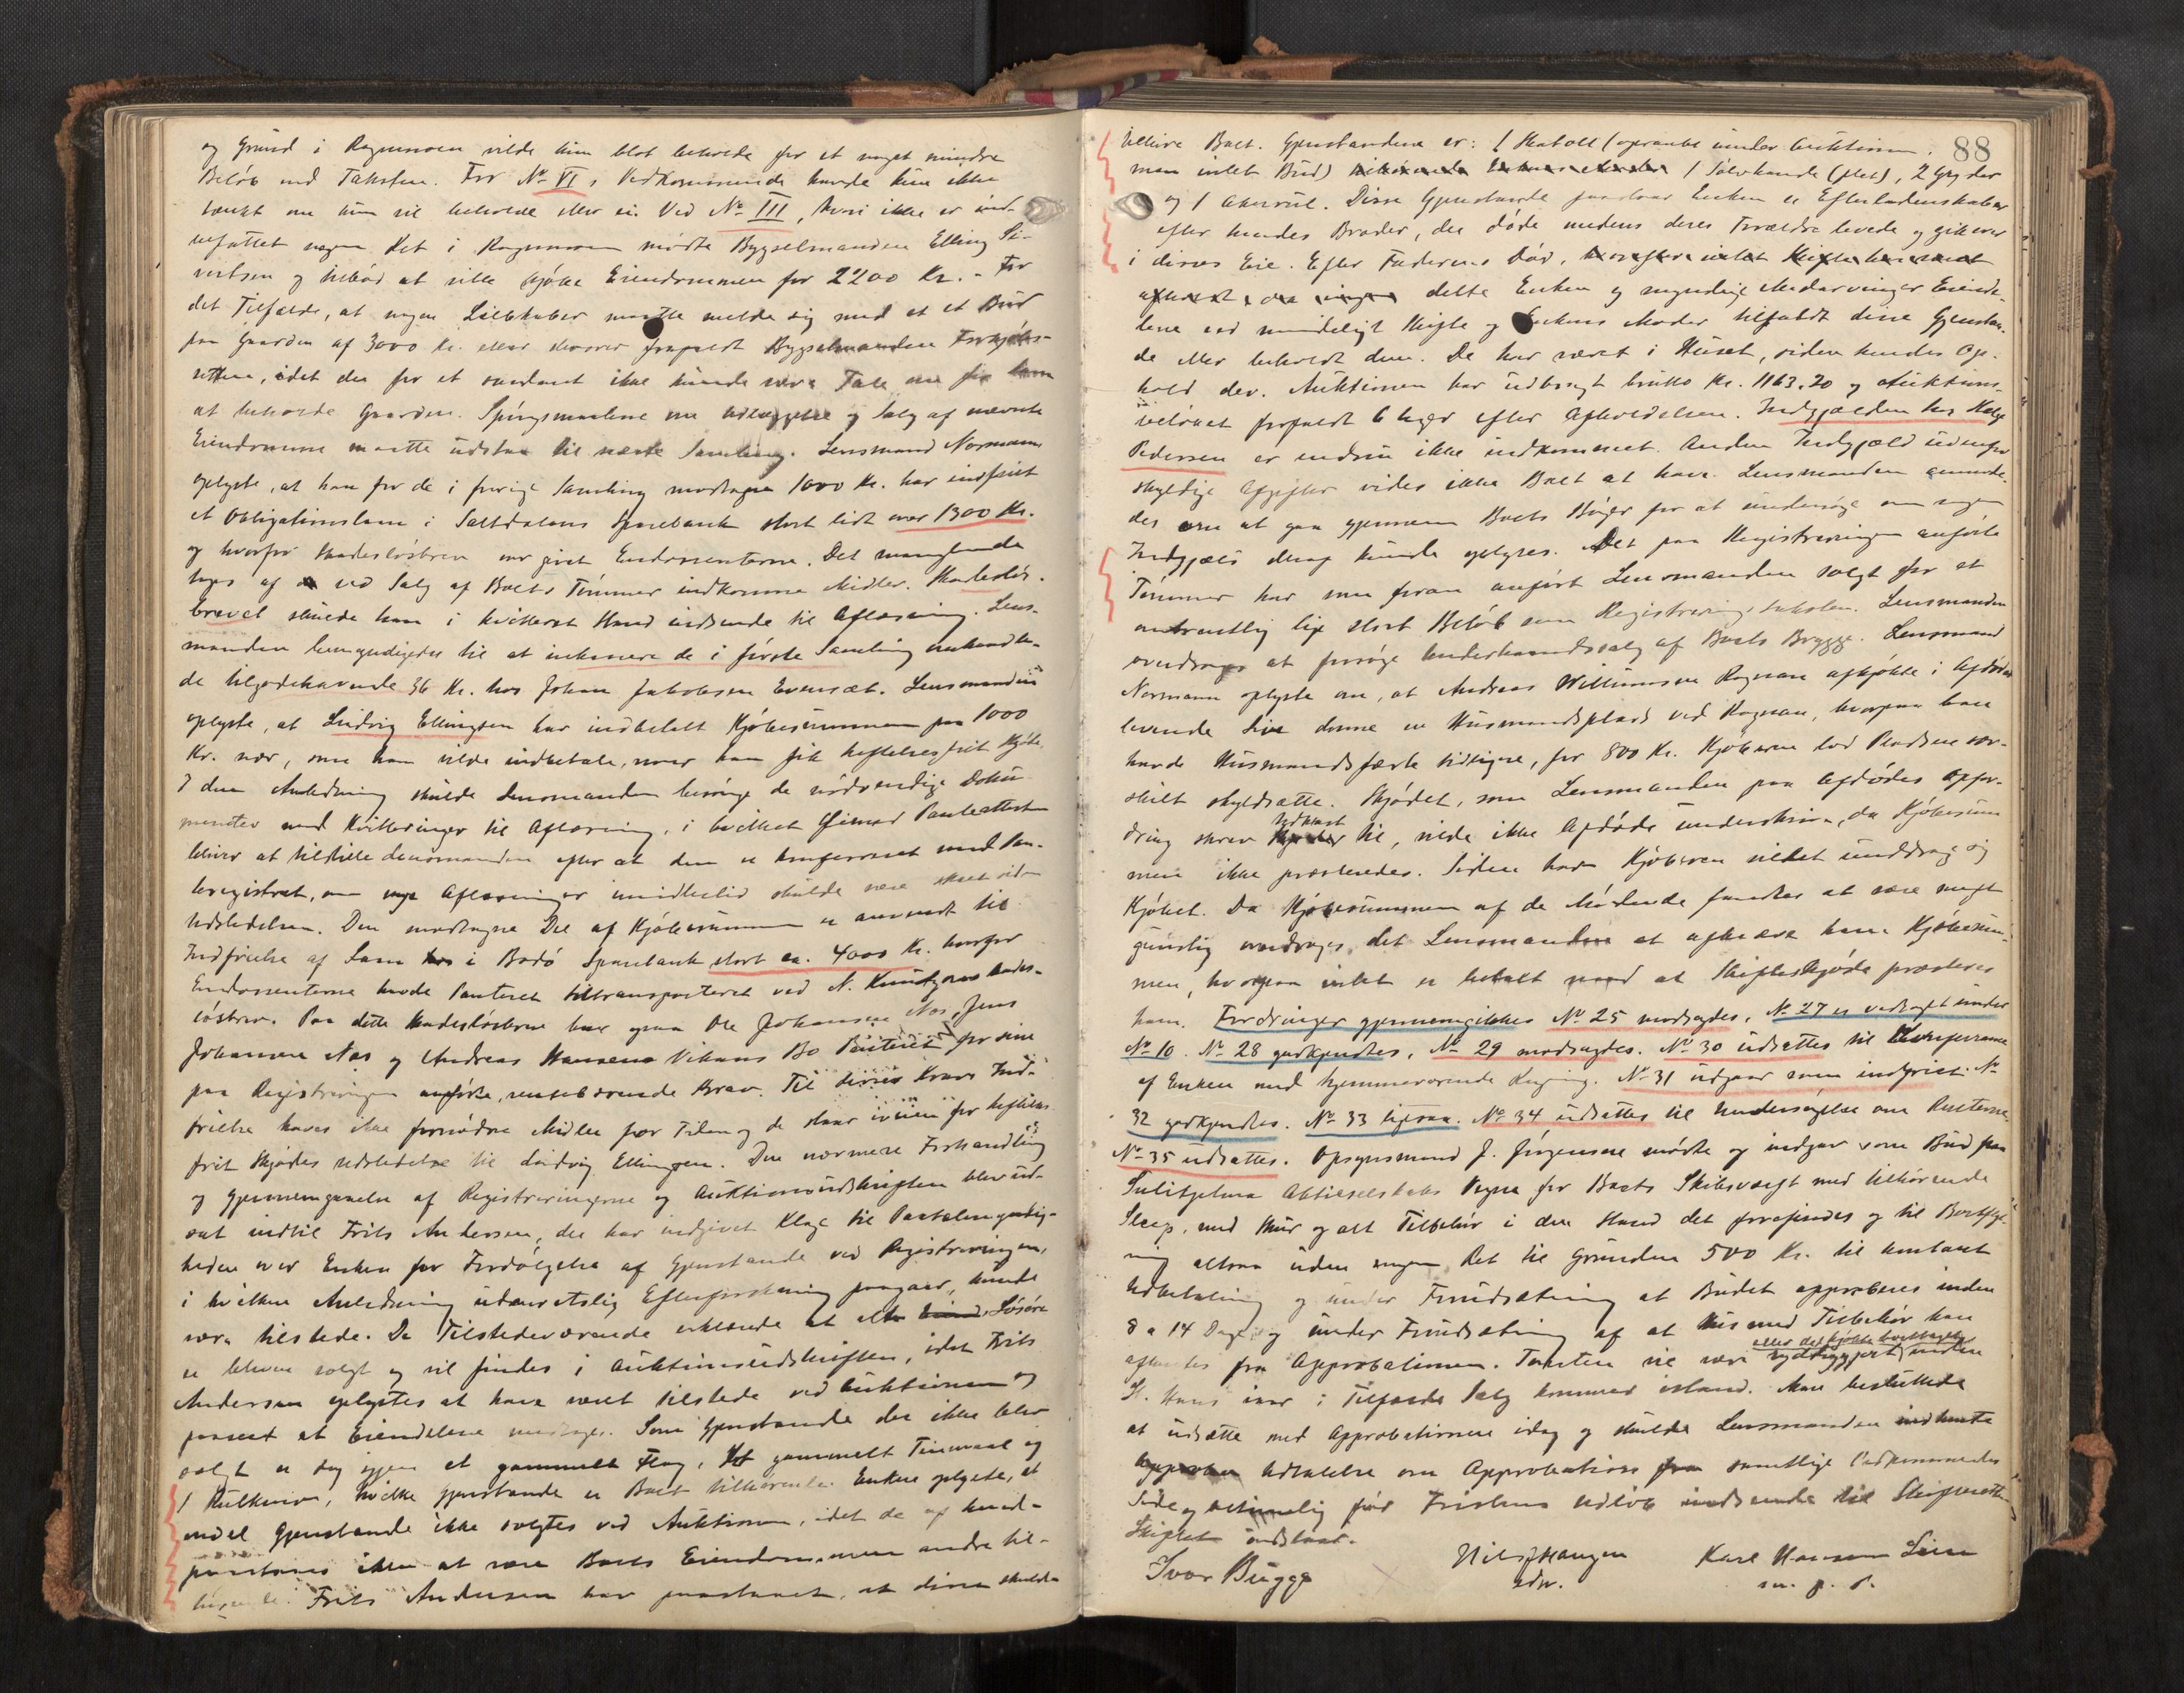 og Grund i Rognmoen vilde hun blot beholde for et noget mindre
Beløb end Taksten. For No VI s Vedkommende havde hun ikke
tænkt om hun vil beholde eller ei. Ved No III, hvori ikke er ind-
befattet nogen Ret i Rognmoen mødte Bygselmanden Elling Si-
vertsen og tilbød at ville kjøbe Eiendommen for 2200 Kr. - For
det Tilfælde, at nogen Liebhaber maatte melde sig med et Bud
paa Gaarden af 3000 Kr. eller derover frafaldt Bygselmanden Forkjøbs-
retten, idet der for et saadant ikke kunde være Tale om for ham
at beholde Gaarden. Spørgsmaalene om Udlæggelse og Salg af nævnte
Eiendomme maatte udstaa til næste Samling. Lensmand Normann
oplyste, at han for de i forrige Samling modtagne 1000 Kr. har indfriet
et Obligationslaan i Saltdalens Sparebank stort lidt over 1300 Kr.
og hvorfor Skadesløsbrev var givet Endossenterne. Det manglende
toges af ved Salg af Boets Tømmer indkomne Midler. Skadesløs-
brevet skulde han i kvitteret Stand indsende til Aflæsning. Lens-
manden bemyndigedes til at inkassere de i første Samling omhandle-
de tilgodehavende 36 Kr. hos Johan Jakobsen Evensæt. Lensmanden
oplyste, at Ludvig Ellingsen har indbetalt Kjøbesummen paa 1000
Kr. nær, som han vilde indbetale, naar han fik heftelsesfrit Skjøde.
I den Anledning skulde Lensmanden besørge de nødvendige Doku-
menter med Kvitteringer til Aflæsning, i hvilket Øimed Panteattesten
bliver at tilstille Lensmanden efter at den er konfereret med Pan-
teregistret, om nye Aflæsninger imidlertid skulde være skeet siden
Udstedelsen. Den modtagne Del af Kjøbesummen er anvendt til
Indfrielse af Laan i Bodø Sparebank stort ca. 4000 Kr. hvorfor
Endossenterne havde Panteret tiltransporteret ved N. Knudsens Skades-
løsbrev. Paa dette Skadesløsbrev har ogsaa Ole Johansen Nes, Jens
Johansen Nes og Andreas Hansens Vikens Bo Panteret for sine
paa Registreringen anførte, rentebærende Krav. Til disses Kravs Ind-
frielse haves ikke fornødne Midler for Tiden og de staar iveien for heftelses-
frit Skjødes Udstedelse til Ludvig Ellingsen. Den nærmere Forhandling
og Gjennemgaaelse af Registreringerne og Auktionsudskriften blev ud-
sat indtil Frits Andersen, der har indgivet Klage til Paatalemyndig-
heden over Enken for Fordølgelse af Gjenstande ved Registreringen,
i hvilken Anledning udenretslig Efterforskning foregaar, kunde
være tilstede. De Tilstedeværende erklærede at alt Løsøre
er bleven solgt og vil findes i Auktionsudskriften, idet Frits
Andersen oplystes at have været tilstede ved Auktionen og
paaseet at Eiendelene medtoges. Som Gjenstande der ikke blev
solgt er dog igjen et gammelt Flag, et gammelt Tinvaal og
1 Kulkurv, hvilke Gjenstande er Boet tilhørende. Enken oplyste, at
endel Gjenstande ikke solgtes ved Auktionen, idet de af hende
paastaaes ikke at være Boets Eiendom, men andre til-
hørende. Frits Andersen har paastaaet, at disse skulde
88
tilhøre Boet. Gjenstandene er: 1 Skatoll (opraabt under Auktionen,
men intet Bud) 1 Sølvkande (plet), 2 Gryder
og 1 Chatol. Disse Gjenstande forklarer Enken er Efterladenskaber
efter hendes Broder, der døde medens deres Forældre levede og gik over
i disses Eie. Efter Faderens Død,
delte Enken og myndige Medarvinger Eiende-
lene ved mindeligt Skifte og Enkens Moder tilfaldt disse Gjenstan-
de eller beholdt dem. De har været i Huset, siden hendes Op-
hold der. Auktionen har udbragt brutto Kr. 1163.20 og Auktions-
beløbet forfaldt 6 Uger efter Afholdelsen. Indgjælden hos Helge
Pedersen er endnu ikke indkommet. Anden Indgjæld udenfor
skyldige Afgifter vides ikke Boet at have. Lensmanden anmode-
des om at gaa gjennem Boets Bøger for at undersøge om nogen
Indgjæld deraf kunde oplyses. Det paa Registreringen anførte
Tømmer har som foran anført Lensmanden solgt for et
omtrentlig lige stort Beløb som Registreringstaksten. Lensmanden
overdroges at forsøge Underhaandssalg af Boets Brygge. Lensmand
Normann oplyste om, at Andreas Willumsen Rognan afkjøbte i Afdødes
levende Live denne en Husmandsplads ved Rognan, hvorpaa han
havde Husmandsfæste tidligere, for 800 Kr. Kjøberen lod Pladsen sær-
skilt skyldsætte. Skjødet, som Lensmanden paa Afdødes Opfor-
dring skrev Udkast til, vilde ikke Afdøde underskrive, da Kjøbesum-
men ikke præsteredes. Siden har Kjøberen villet unddrage sig
Kjøbet. Da Kjøbesummen af de Mødende fandtes at være meget
gunstig overdroges det Lensmanden at afkræve ham Kjøbesum-
men, hvorpaa intet er betalt mod at Skifteskjøde præsteres
ham. Fordringer gjennemgikkes No 25 modsagdes. No 27 er vedtaget under
No 10. No 28 godkjendtes. No 29 modsagdes. No 30 udsættes til Konferance
af Enken med hjemmeværende Regning. No 31 udgaar som indfriet. No
32 godkjendtes. No 33 ligesaa. No 34 udsættes til Undersøgelse om Resterne.
No 35 udsættes. Opsynsmand J. Jørgensen mødte og indgav som Bud paa
Sulitjelma Aktieselskabs Vegne for Boets Skibsværft med tilhørende
Sleep, med Skur og alt Tilbehør i den Stand det forefindes og til Bortflyt-
ning altsaa uden nogen Ret til Grunden 500 Kr. til kontant
Udbetaling og under Forudsætning at Budet approberes inden
8 a 14 Dage og under Forudsætning af at Hus med Tilbehør kan
afhentes fra Approbationen. Tomten vil være ryddiggjort eller det kjøbte borttaget inden
St. Hans iaar i Tilfælde Salg kommer istand. Man besluttede
at udsætte med Approbationen idag og skulde Lensmanden indhente
Udtalelse om Approbation fra samtlige Vedkommendes
Side og betimelig før Fristens Udløb indsende til Skifteretten
Skiftet udsat.
Ivar Bugge
Nils J Haugen
Karl Hansen Lien
m. p. P.